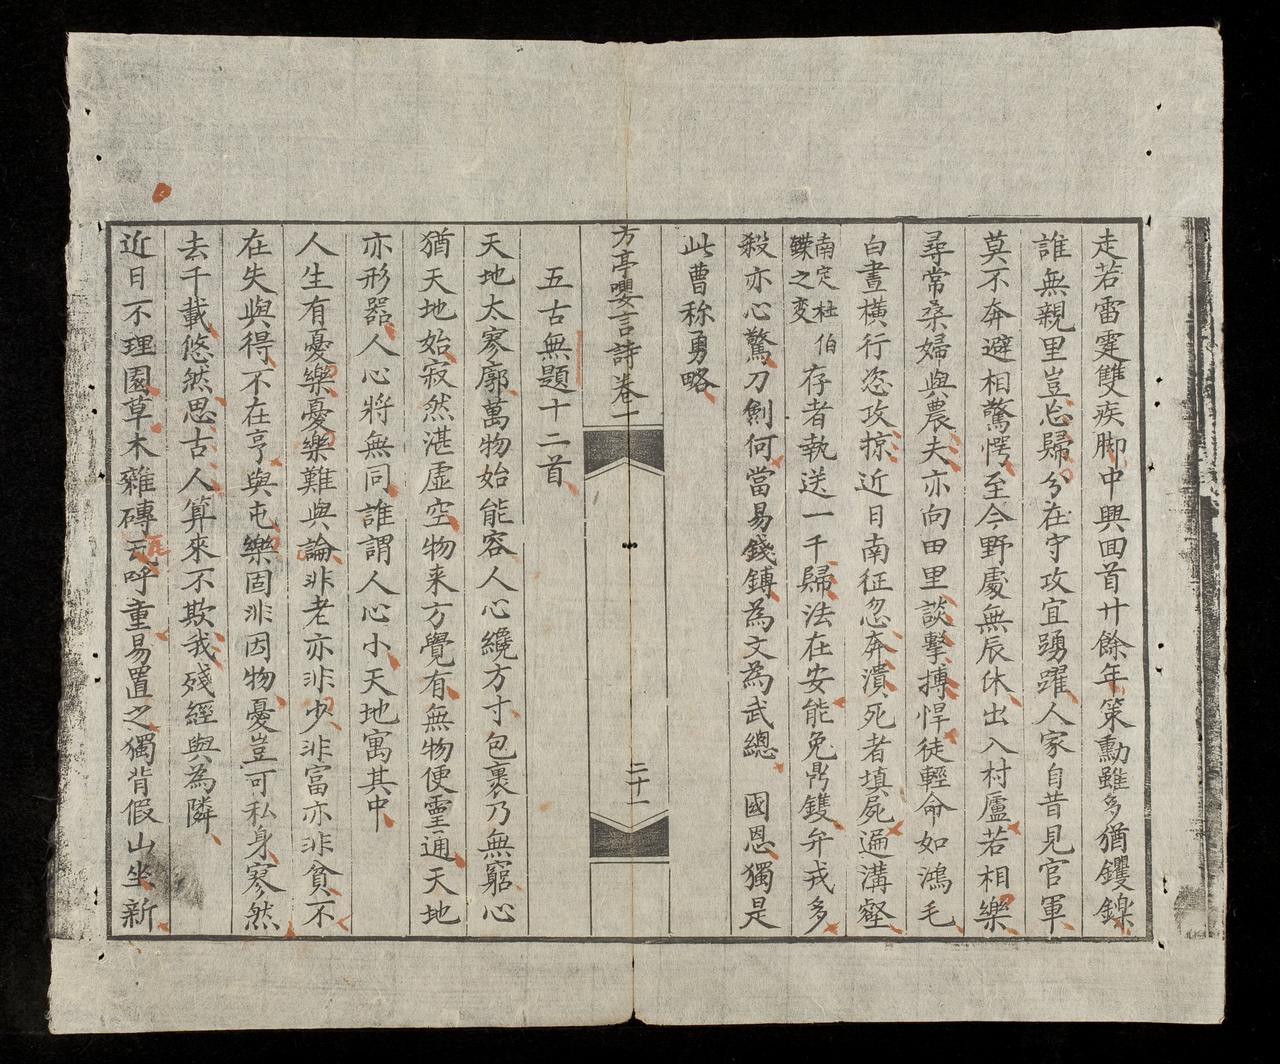 走若雷霆雙疾脚中興回首廿餘年策勳雖多猶钁鑠
誰無親里豈忘歸分在守攻宜踴躍人家自昔見官軍
莫不奔避相驚愕至今野處無辰休出入村廬若相樂
尋常桑婦與農夫亦向田里談擊搏悍徒輕命如鴻毛
白晝橫行恣攻掠近日南征忽奔潰死者填屍遍溝壑
南定杜伯
鑅之変
存者執送一千歸法在安能免鼎鑊弁戎多
殺亦心驚刀劍何當易錢鎛為文為武總 國恩獨是
此曹称勇略
方亭嚶言詩卷一
二十一
五古無題十二首
天地太寥廓萬物始能容人心纔方寸包裹乃無窮心
猶天地始寂然湛虛空物来方覺有無物便靈通天地
亦形器人心將無同誰謂人心小天地寓其中
人生有憂樂憂樂難與論非老亦非少非富亦非貧不
在失與得不在亨與屯樂固非因物憂豈可私身寥然
去千載悠然思古人算來不欺我殘經與為隣
近日不理園草木雜磚瓦呼童易置之獨背假山坐新